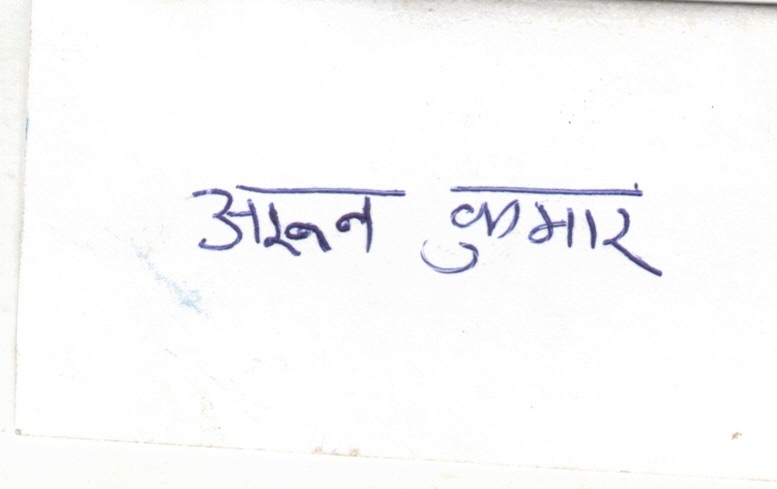 अरून कुमार